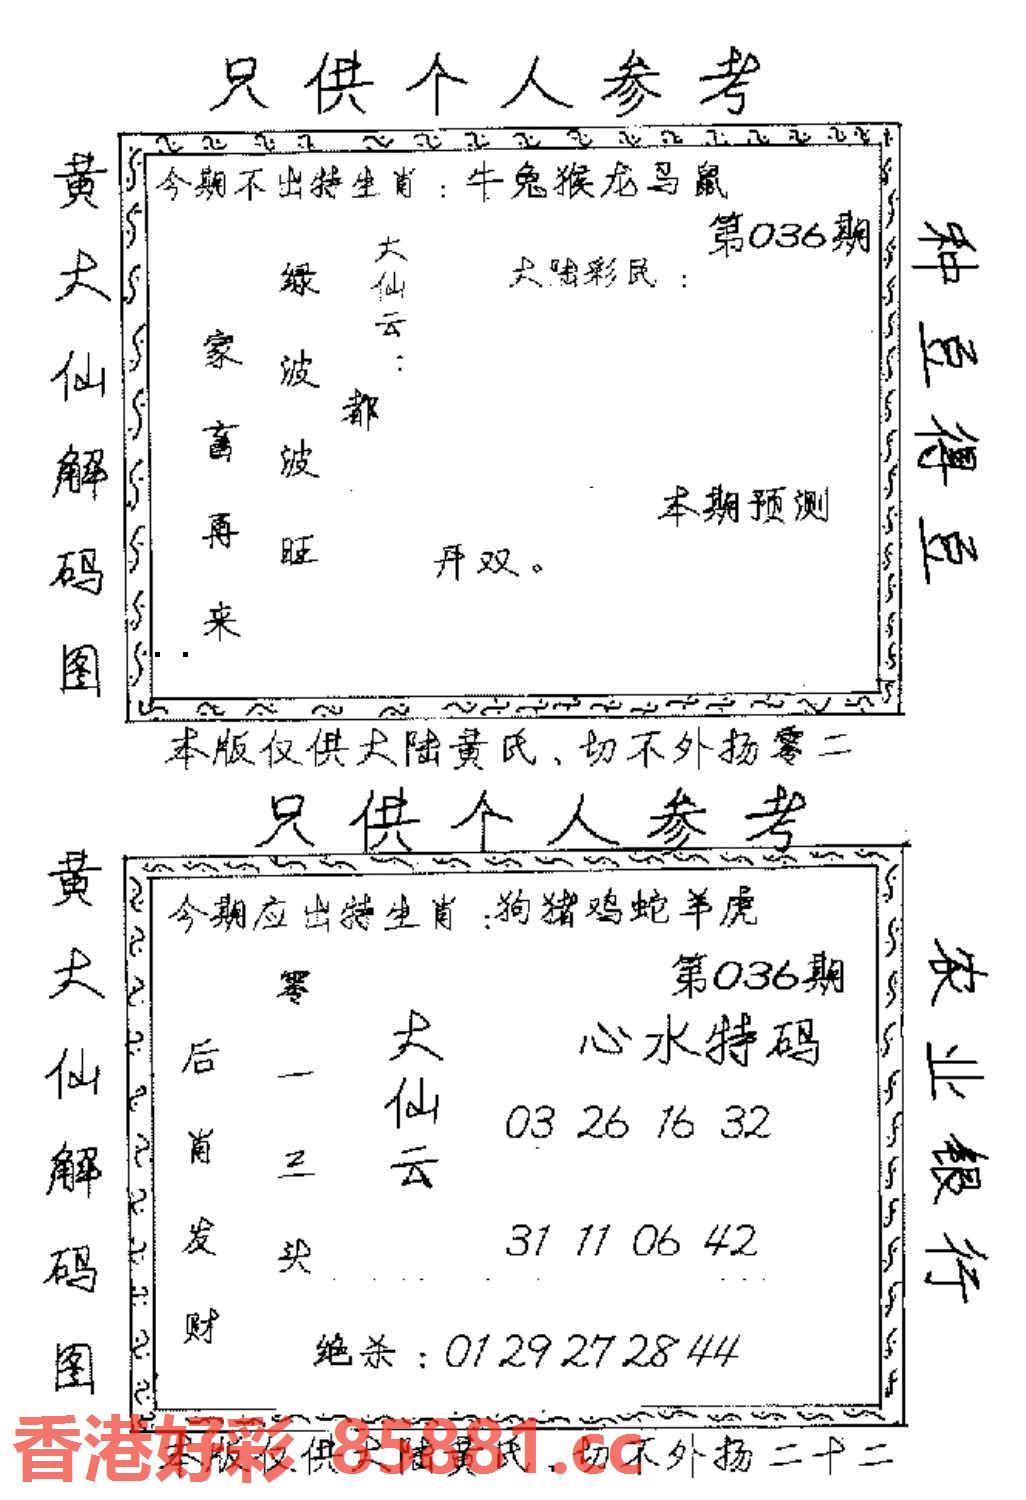 只供个人参考
黄大仙解码图
今期不出特生肖：牛兔猴龙马鼠
第036期
种豆得豆
大仙云：
大陆彩民：
绿波波旺都
家畜再来
本期预测
开双。
本版仅供大陆黄氏、切不外扬零二
只供个人参考
黄大仙解码图
今期应出特生肖：狗猪鸡蛇羊虎
第036期
农业银行
零一三头
后肖发财
大仙云
心水特码
03 26 16 32
31 11 06 42
绝杀：01 29 27 28 44
本版仅供大陆黄氏、切不外扬二十二
香港好彩 85881.cc